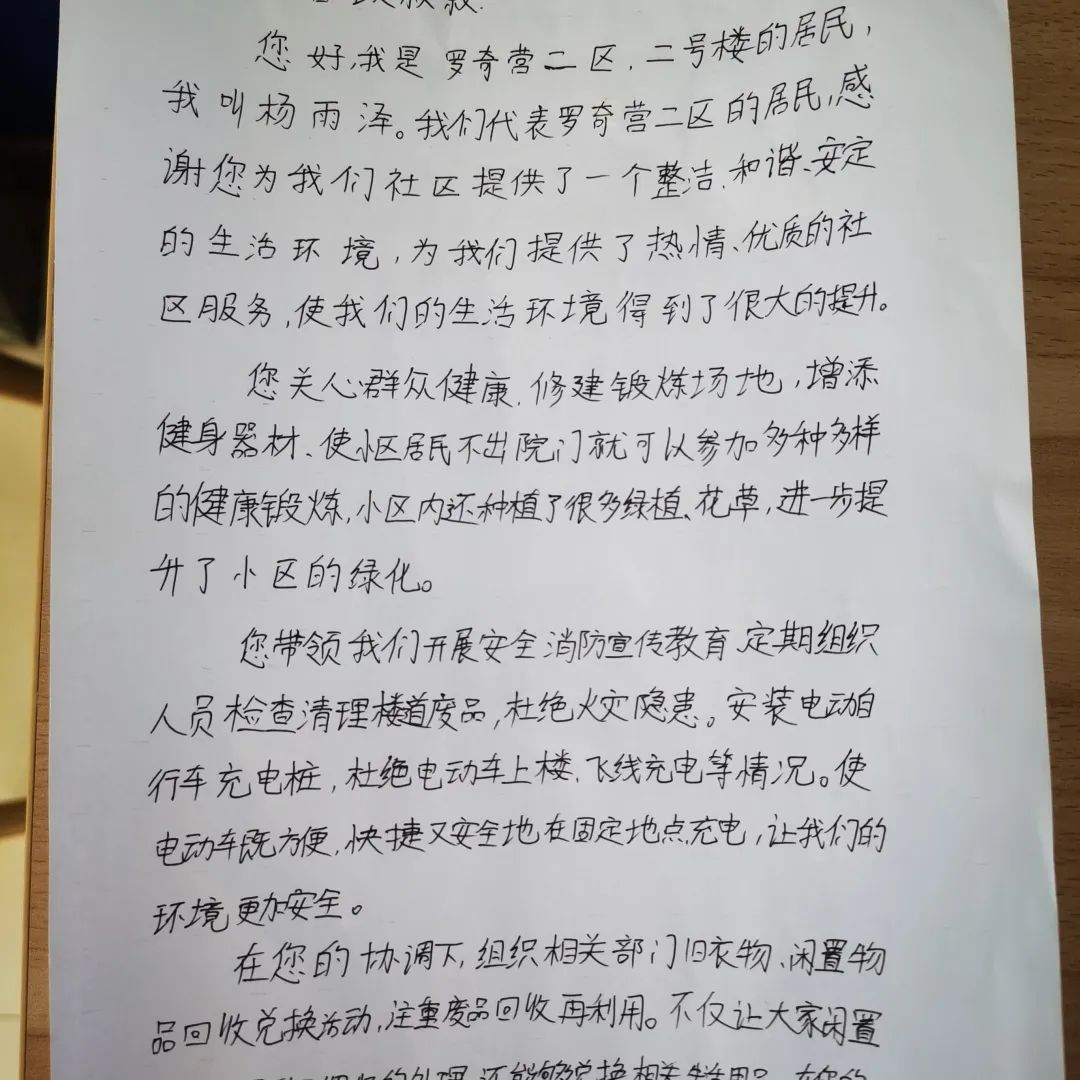 叔叔:
您好,我是罗奇营二区,二号楼的居民,
我叫杨雨泽。我们代表罗奇营二区的居民,感
谢您为我们社区提供了一个整洁、和谐、安定
的生活环境,为我们提供了热情、优质的社
区服务,使我们的生活环境得到了很大的提升。
您关心群众健康,修建锻炼场地,增添
健身器材、使小区居民不出院门就可以参加多种多样
的健康锻炼,小区内还种植了很多绿植、花草,进一步提
升了小区的绿化。
您带领我们开展安全消防宣传教育,定期组织
人员检查清理楼道废品,杜绝火灾隐患。安装电动自
行车充电桩,杜绝电动车上楼、飞线充电等情况。使
电动车既方便,快捷又安全地在固定地点充电,让我们的
环境更加安全。
在您的协调下,组织相关部门旧衣物、闲置物
品回收兑换活动,注重废品回收再利用。不仅让大家闲置
的处理,还能够兑换相关